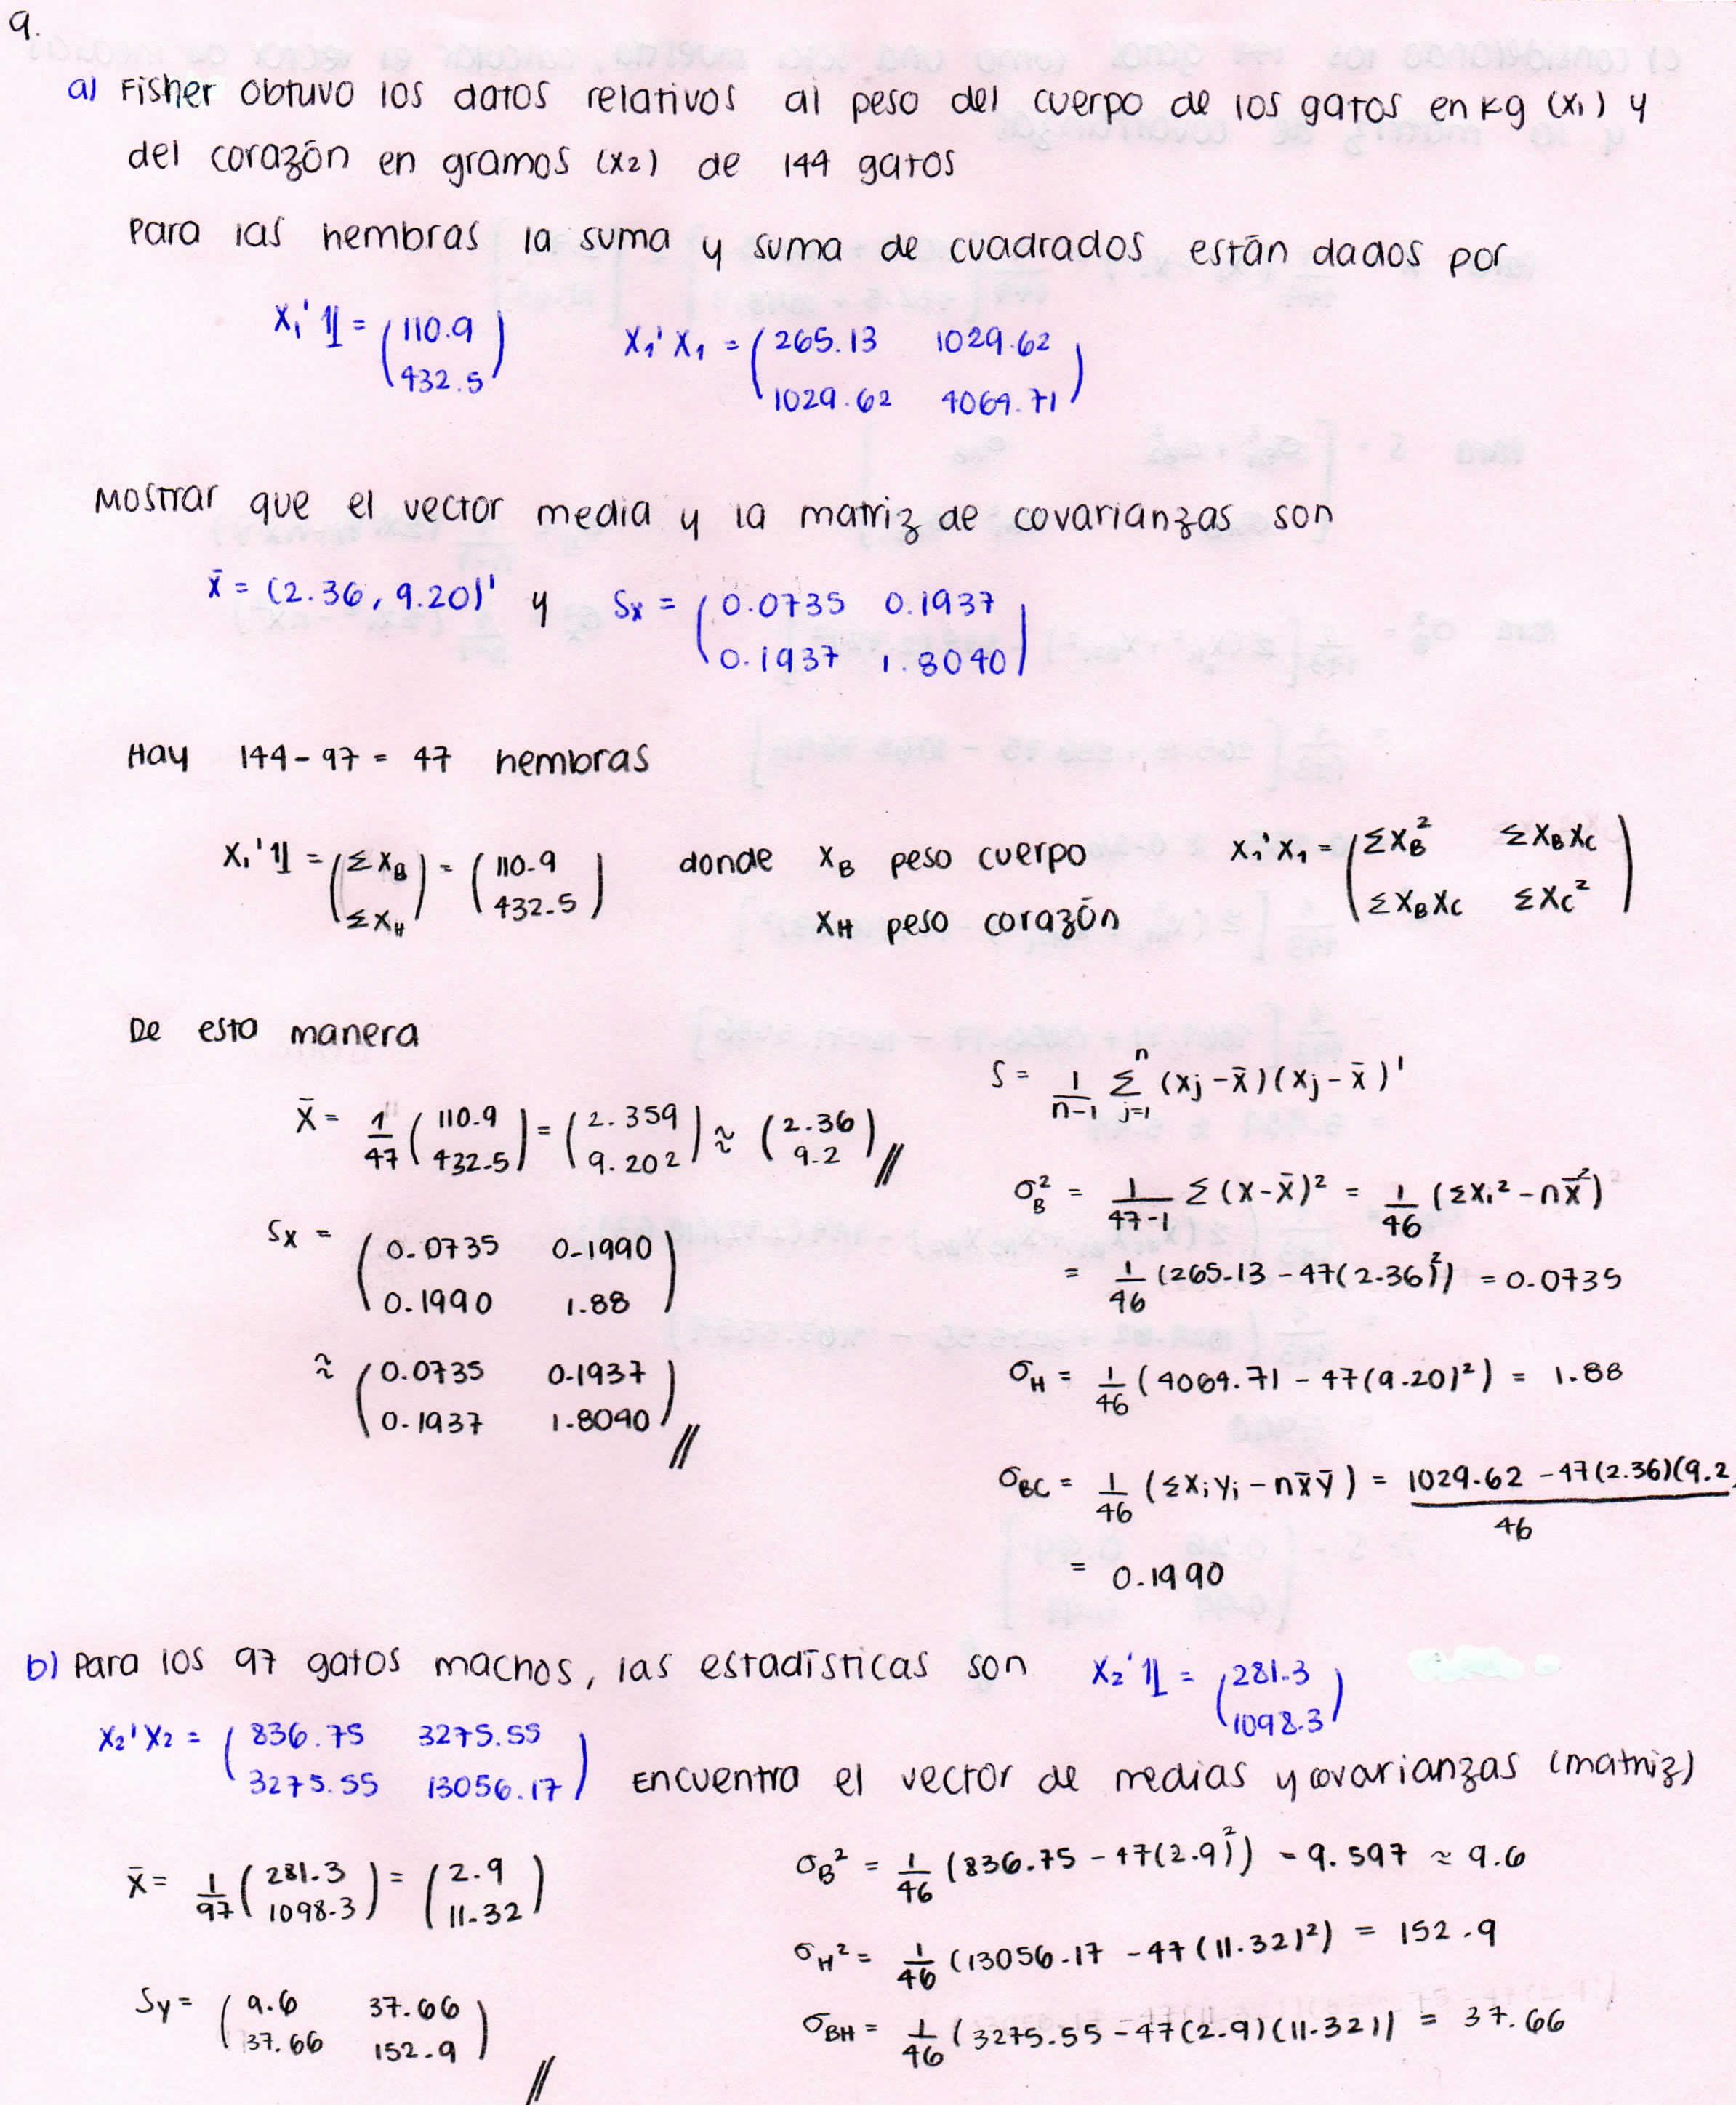 9.
a) Fisher obtuvo los datos relativos al peso del cuerpo de los gatos en kg (x₁) y
del corazón en gramos (x₂) de 144 gatos
Para las hembras la suma y suma de cuadrados están dados por
X₁'1 = (110.9 432.5) X₁'X₁ = (265.13 1029.62 1029.62 4064.71)
Mostrar que el vector media y la matriz de covarianzas son
x̄ = (2.36, 9.20)' y Sx = (0.0735 0.1937 0.1937 1.8040)
Hay 144-97 = 47 hembras
X₁'1 = (ΣX_B ΣX_H) = (110.9 432.5) donde X_B peso cuerpo X₁'X₁ = (ΣX_B² ΣX_BX_C ΣX_BX_C ΣX_C²)
X_H peso corazón
De esta manera
S = 1/(n-1) Σ_{j=1}^{n} (xj - x̄)(xj - x̄)'
X̄ = 1/47 (110.9 432.5) = (2.359 9.202) ≈ (2.36 9.2) //
σ_B² = 1/(47-1) Σ(x-x̄)² = 1/46 (Σxi² - nx̄²)
Sx = (0.0735 0.1990 0.1990 1.88)
= 1/46 (265.13 - 47(2.36)²) = 0.0735
≈ (0.0735 0.1937 0.1937 1.8040) //
σ_H = 1/46 (4064.71 - 47(9.20)²) = 1.88
σ_BC = 1/46 (Σxiyi - nx̄ȳ) = (1029.62 - 47(2.36)(9.2)/46
= 0.1990
b) Para los 97 gatos machos, las estadísticas son X₂'1 = (281.3 1098.3)
X₂'X₂ = (836.75 3275.55 3275.55 13056.17) Encuentra el vector de medias y covarianzas (matriz)
x̄ = 1/97 (281.3 1098.3) = (2.9 11.32)
σ_B² = 1/46 (836.75 - 47(2.9)²) = 9.597 ≈ 9.6
σ_H² = 1/46 (13056.17 - 47(11.32)²) = 152.9
Sy = (9.6 37.66 37.66 152.9) //
σ_BH = 1/46 (3275.55 - 47(2.9)(11.32)) = 37.66